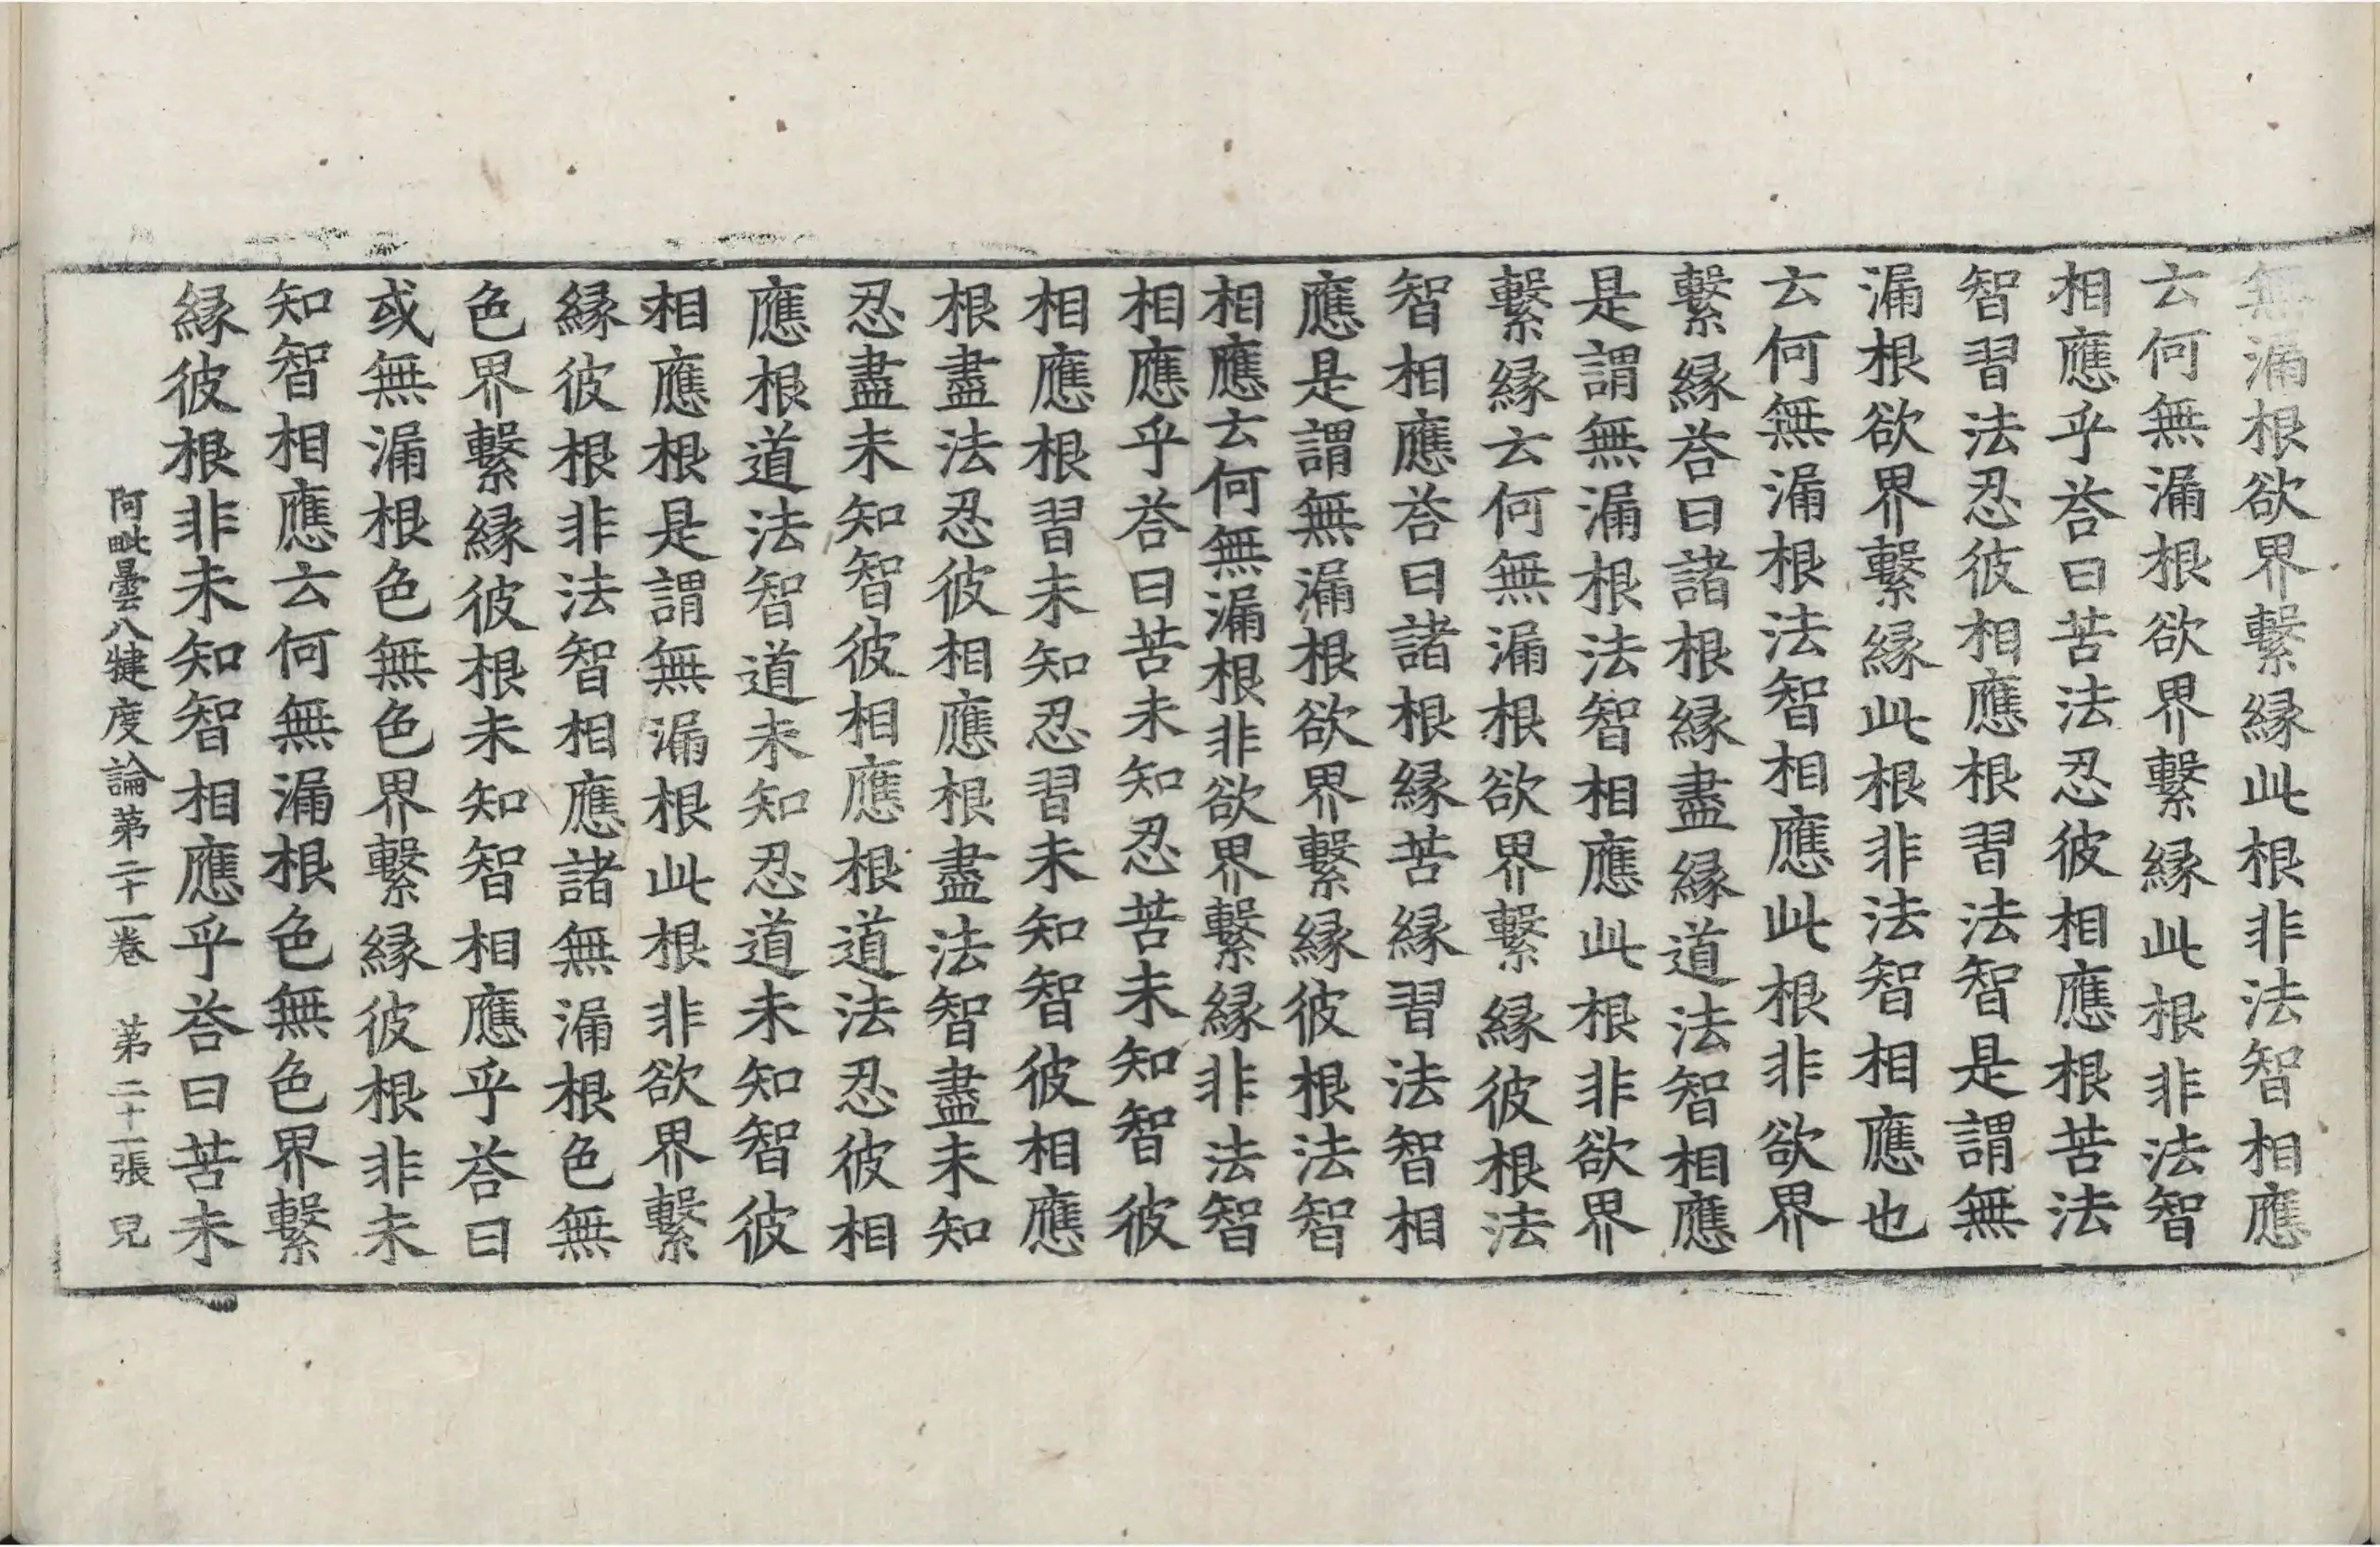 無漏根欲界繫縁此根非法智相應
云何無漏根欲界繫縁此根非法智
相應乎荅曰苦法忍彼相應根苦法
智習法忍彼相應根習法智是謂無
漏根欲界繫縁此根非法智相應也
云何無漏根法智相應此根非欲界
繫縁荅曰諸根縁盡縁道法智相應
是謂無漏根法智相應此根非欲界
繫縁云何無漏根欲界繫縁彼根法
智相應荅曰諸根縁苦縁習法智相
應是謂無漏根欲界繫縁彼根法智
相應云何無漏根非欲界繫縁非法智
相應乎荅曰苦未知忍苦未知智彼
相應根習未知忍習未知智彼相應
根盡法忍彼相應根盡法智盡未知
忍盡未知智彼相應根道法忍彼相
應根道法智道未知忍道未知智彼
相應根是謂無漏根此根非欲界繫
縁彼根非法智相應諸無漏根色無
色界繫縁彼根未知智相應乎荅曰
或無漏根色無色界繫縁彼根非未
知智相應云何無漏根色無色界繫
縁彼根非未知智相應乎荅曰苦未
阿毗曇八犍度論第二十一卷 第二十一張 兒